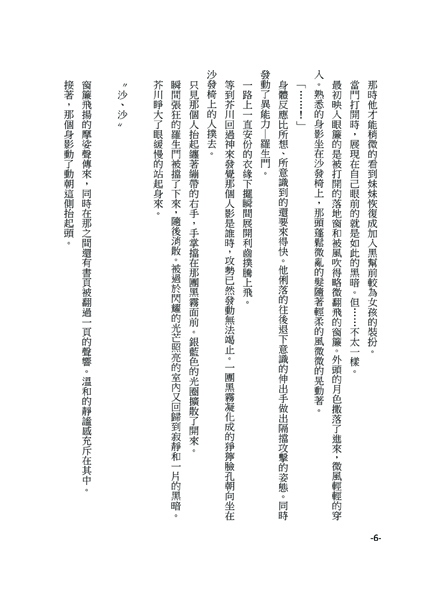 那時他才能稍微的看到妹妹恢復成加入黑幫前較為女孩的裝扮。
當門打開時，展現在自己眼前的就是如此的黑暗。但……不太一樣。
最初映入眼簾的是被打開的落地窗和被風吹得略微翻飛的窗簾。外頭的月色撒落了進來，微風輕輕的穿
入。熟悉的身影坐在沙發椅上，那頭蓬鬆微亂的髮隨著輕柔的風微微的晃動著。
「……！」
身體反應比所想、所意識到的還要來得快。他俐落的往後退下意識的伸出手做出隔擋攻擊的姿態。同時
發動了異能力—羅生門。
一路上一直安份的衣緣下擺瞬間展開利齒撲騰上飛。
等到芥川回過神來發覺那個人影是誰時，攻勢已然發動無法竭止。一團黑霧凝化成的猙獰臉孔朝向坐在
沙發椅上的人撲去。
只見那個人抬起纏著繃帶的右手，手掌擋在那團黑霧面前。銀藍色的光圈擴散了開來。
瞬間張狂的羅生門被擋了下來，隨後消散。被過於閃耀的光芒照亮的室內又回歸到寂靜和一片的黑暗。
芥川睜大了眼緩慢的站起身來。
〝沙、沙〞
窗簾飛揚的摩娑聲傳來，同時在那之間還有書頁被翻過一頁的聲響。溫和的靜謐感充斥在其中。
接著，那個身影動了動朝這側抬起頭。
-6-